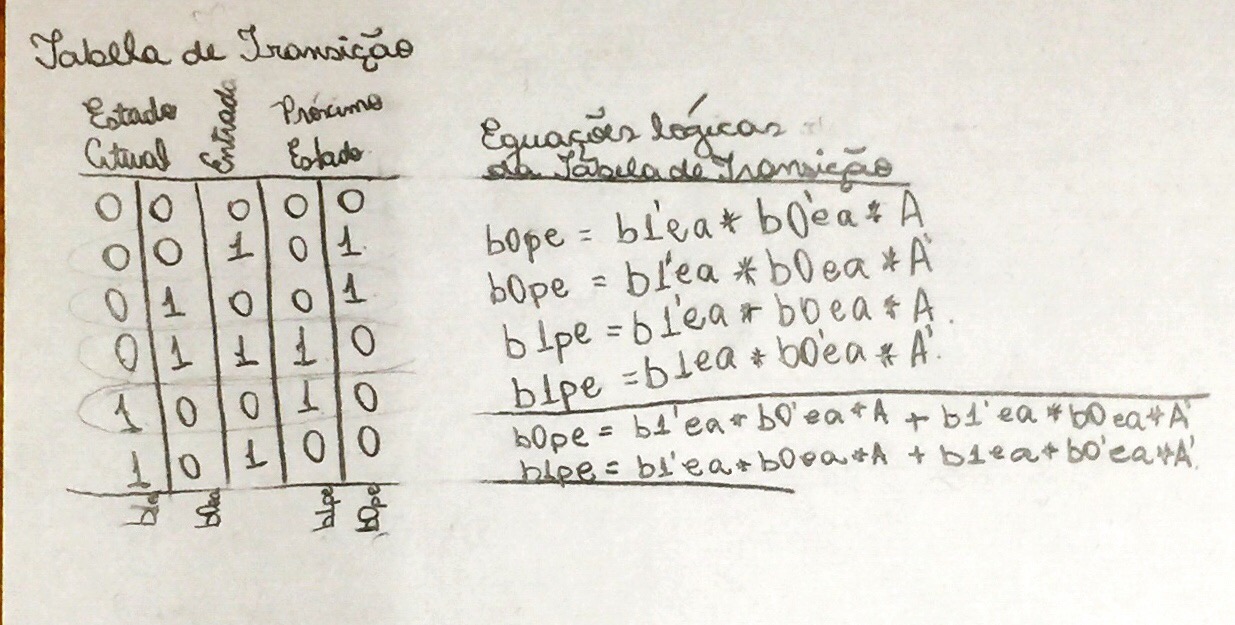 Tabela de Transição
Estado Atual Entrada Próximo Estado
0 0 0 0 0
0 0 1 0 1
0 1 0 0 1
0 1 1 1 0
1 0 0 1 0
1 0 1 0 0
b1ea b0ea b1pe b0pe
Equações lógicas
da Tabela de Transição
b0pe = b1'ea * b0'ea * A
b0pe = b1'ea * b0ea * A'
b1pe = b1'ea * b0ea * A.
b1pe = b1ea * b0'ea * A'.
b0pe = b1'ea * b0'ea * A + b1'ea * b0ea * A'
b1pe = b1'ea * b0ea * A + b1ea * b0'ea * A'.